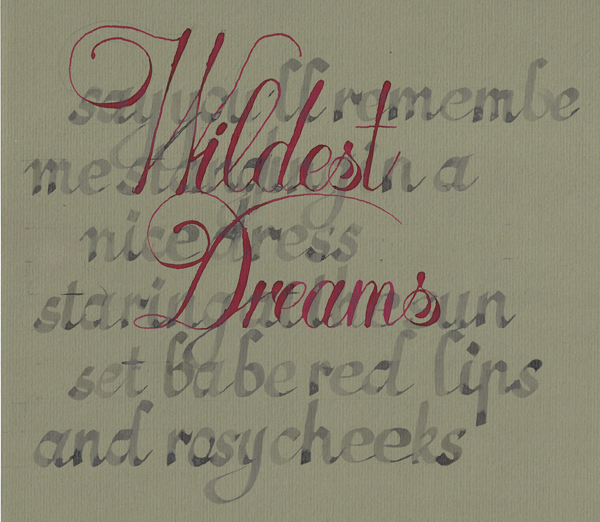 Wildest
Dreams
say you'll remembe
me standing in a
nice dress
staring at the sun
set babe red lips
and rosy cheeks